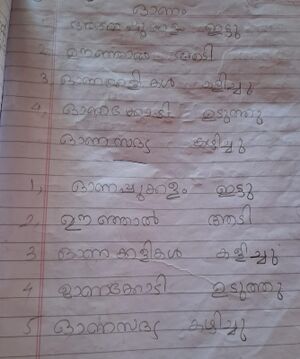 ഓണം
ഇട്ടു
2. ഊഞ്ഞാൽ ആടി
3, ഓണക്കളികൾ കളിച്ചു
4, ഓണക്കോടി ഉടുത്തു
ഓണസദ്യ കഴിച്ചു
1, ഓണപ്പൂക്കളം ഇട്ടു
2, ഊഞ്ഞാൽ ആടി
3 ഓണക്കളികൾ കളിച്ചു
4 ഓണക്കോടി ഉടുത്തു
5 ഓണസദ്യ കഴിച്ചു